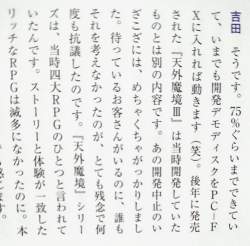 吉田　そうです。75％ぐらいまでできてい
て、いまでも開発デモディスクをPC-F
Xに入れれば動きます（笑）。後年に発売
された『天外魔境Ⅲ』は当時開発していた
ものとは別の内容です。あの開発中止のい
ざこざには、めちゃくちゃがっかりしまし
た。待っているお客さんがいるのに、誰も
それを考えなかったのが、とても残念で何
度も抗議したのです。『天外魔境』シリー
ズは、当時四大RPGのひとつと言われて
いたんです。ストーリーと体験が一致した
リッチなRPGは滅多になかったのに。本